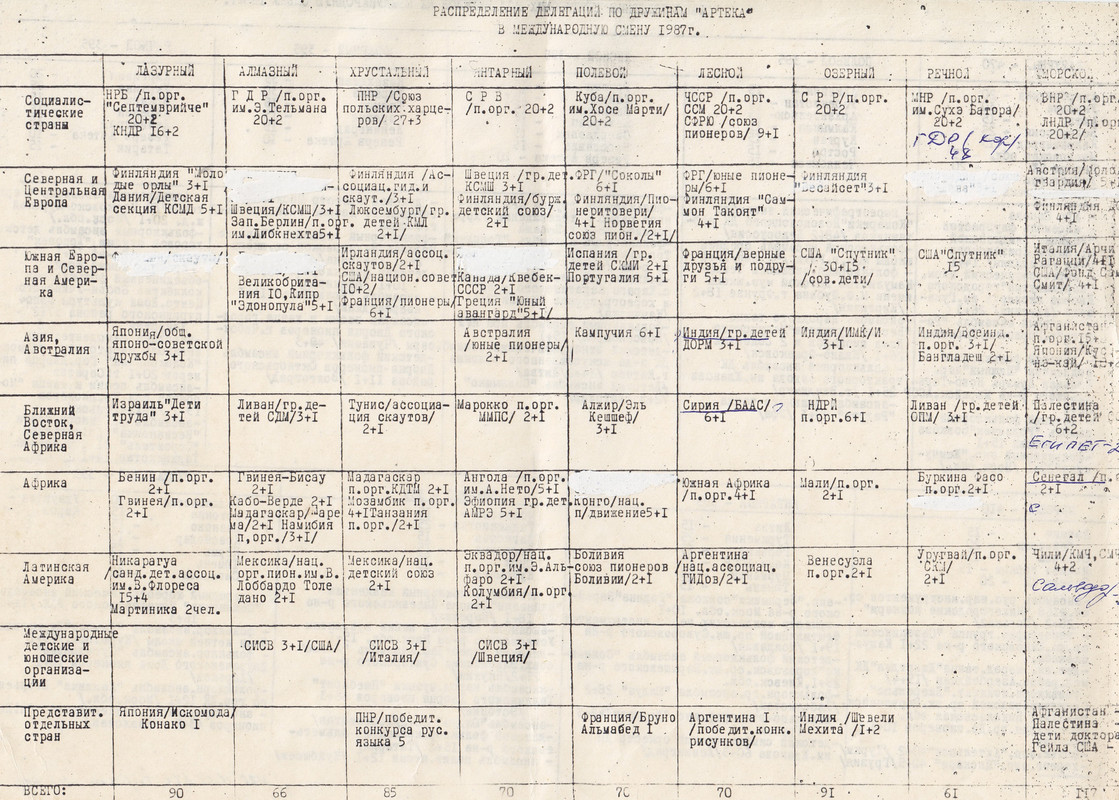 РАСПРЕДЕЛЕНИЕ ДЕЛЕГАЦИЙ ПО ДРУЖИНАМ "АРТЕКА"
В МЕЖДУНАРОДНУЮ СМЕНУ 1987г.
ЛАЗУРНЫЙ
АЛМАЗНЫЙ
ХРУСТАЛЬНЫЙ
ЯНТАРНЫЙ
ПОЛЕВОЙ
ЛЕСНОЙ
ОЗЕРНЫЙ
РЕЧНОЙ
МОРСКО
Социалис-
тические
страны
НРБ /п.орг.
"Септемврийче"
20+2
КНДР I6+2
Г Д Р /п.орг.
им.Э.Тельмана
20+2
ПНР /Союз
польских.харце-
ров/ 27+3
С Р В
/п.орг. 20+2
Куба/п.орг.
им.Хосе Марти/
20+2
ЧССР /п.орг.
ССМ 20+2
СФРЮ /союз
пионеров/ 9+I
С Р Р/п.орг.
20+2
МНР /п.орг.
им.Сухэ Батора/
20+2
ГДР/
ВНР /п.орг.
20+2
ЛНДР /п.орг
20+2/
Северная и
Центральная
Европа
Финляндия "Моло
дые орлы" 3+I
Дания/Детская
секция КСМД 5+I
Швеция/КСМШ/3+I
Зап.Берлин/п.орг.
им.Либкнехта5+I
Финляндия /Ас-
социац.гид.и
скаут./3+I
Люксембург/гр.
детей КМЛ
2+I/
Швеция /гр.дет.
КСМШ 3+I
Финляндия/бурж.
детский союз/
2+I
ФРГ/"Соколы"
6+I
Финляндия/Пио-
неритовери/
4+I Норвегия
союз пион./2+I/
ФРГ/юные пионе-
ры/6+I
Финляндия "Сам-
мон Такоят"
4+I
Финляндия
"Весайсет"3+I
Австрия/Молод
гвардия/
Финляндия
4+I
Южная Евро-
па и Север-
ная Амери-
ка
Великобрита-
ния I0,Кипр
"Эдонопула"5+I
Ирландия/ассоц.
скаутов/2+I
США/национ.совет
I0+2/
Франция/пионеры/
6+I
Канада/Квебек-
СССР 2+I
Греция "Юный
авангард"5+I/
Испания /гр.
детей СКМИ 2+I
Португалия 5+I
Франция/верные
друзья и подру-
ги 5+I
США "Спутник"
30+I5
/сов.дети/
США"Спутник"
I5
Италия/Арчи
Рагацци/4+I
США/Фонд Сам
Смит/ 4+I
Азия,
Австралия
Япония/общ.
японо-советской
дружбы 3+I
Австралия
/юные пионеры/
2+I
Кампучия 6+I
Индия/гр.детей
ДОРМ 3+I
Индия/ИМК/И
3+I
Индия/Всеинд.
п.орг. 3+I/
Бангладеш 2+I
Афганистан
п.орг.I5+
Япония/
Ближний
Восток,
Северная
Африка
Израиль"Дети
труда" 3+I
Ливан/гр.де-
тей СДМ/3+I
Тунис/ассоциа-
ция скаутов/
2+I
Марокко п.орг.
ММПС/ 2+I
Алжир/Эль
Кешшеф/
3+I
Сирия /БААС/
6+I
НДРЙ
п.орг.6+I
Ливан /гр.детей
ОПМ/ 3+I
Палестина
/гр.детей
6+2
ЕГИПЕТ-2
Африка
Бенин /п.орг.
2+I
Гвинея/п.орг.
2+I
Гвинея-Бисау
2+I
Кабо-Верде 2+I
Мадагаскар/
ма/2+I Намибия
п,орг./3+I/
Мадагаскар
п.орг.КДТМ 2+I
Мозамбик п.орг.
4+IТанзания
п.орг./2+I
Ангола /п.орг.
им.А.Нето/5+I
Эфиопия гр.дет.
АМРЭ 5+I
Конго/нац.
п/движение5+I
Южная Африка
/п.орг.4+I
Мали/п.орг.
2+I
Буркина Фасо
п.орг.2+I
Сенегал /п.
2+I
Латинская
Америка
Никарагуа
/санд.дет.ассоц.
им.В.Флореса
I5+4
Мартиника 2чел.
Мексика/нац.
орг.пион.им.В.
Лоббардо Толе
дано 2+I
Мексика/нац.
детский союз
2+I
Эквадор/нац.
п.орг.им.Э.Аль-
фаро 2+I
Колумбия/п.орг.
2+I
Боливия
союз пионеров
Боливии/2+I
Аргентина
нац.ассоциац.
ГИДов/2+I
Венесуэла
п.орг.2+I
Уругвай/п.орг.
2+I
Чили/КМЧ,СМ
4+2
Международные
детские и
юношеские
организа-
ции
СИСВ 3+I/США/
СИСВ 3+I
/Италия/
СИСВ 3+I
/Швеция/
Представит.
отдельных
стран
Япония/Искомода/
Конако I
ПНР/победит.
конкурса рус.
языка 5
Франция/Бруно
Альмабед I
Аргентина I
/победит.конк.
рисунков/
Индия /Шевели
Мехита /I+2
Афганистан -
Палестина -
дети доктора
Гейла США -
ВСЕГО:
90
66
85
70
70
70
9I
6I